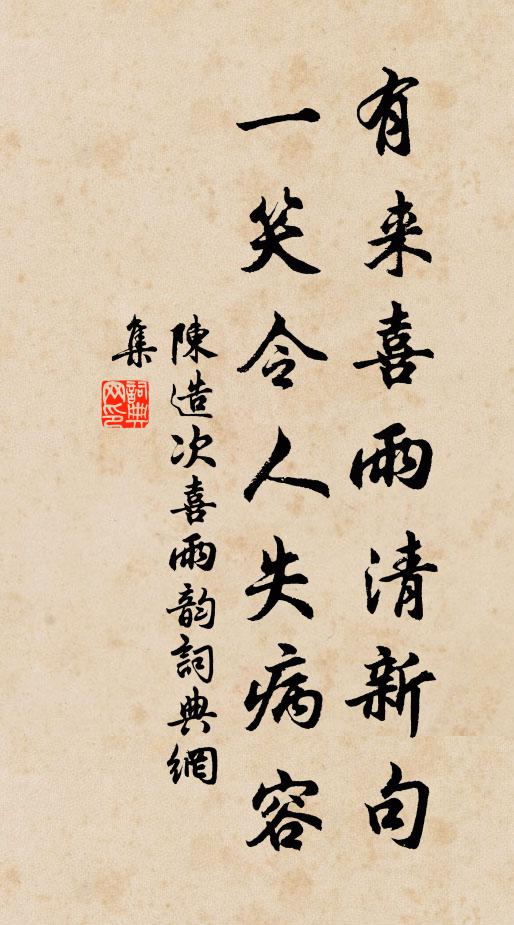 有来喜雨清新句
一笑令人失病容
陳造次喜雨韵詞典網
集
詞典网印